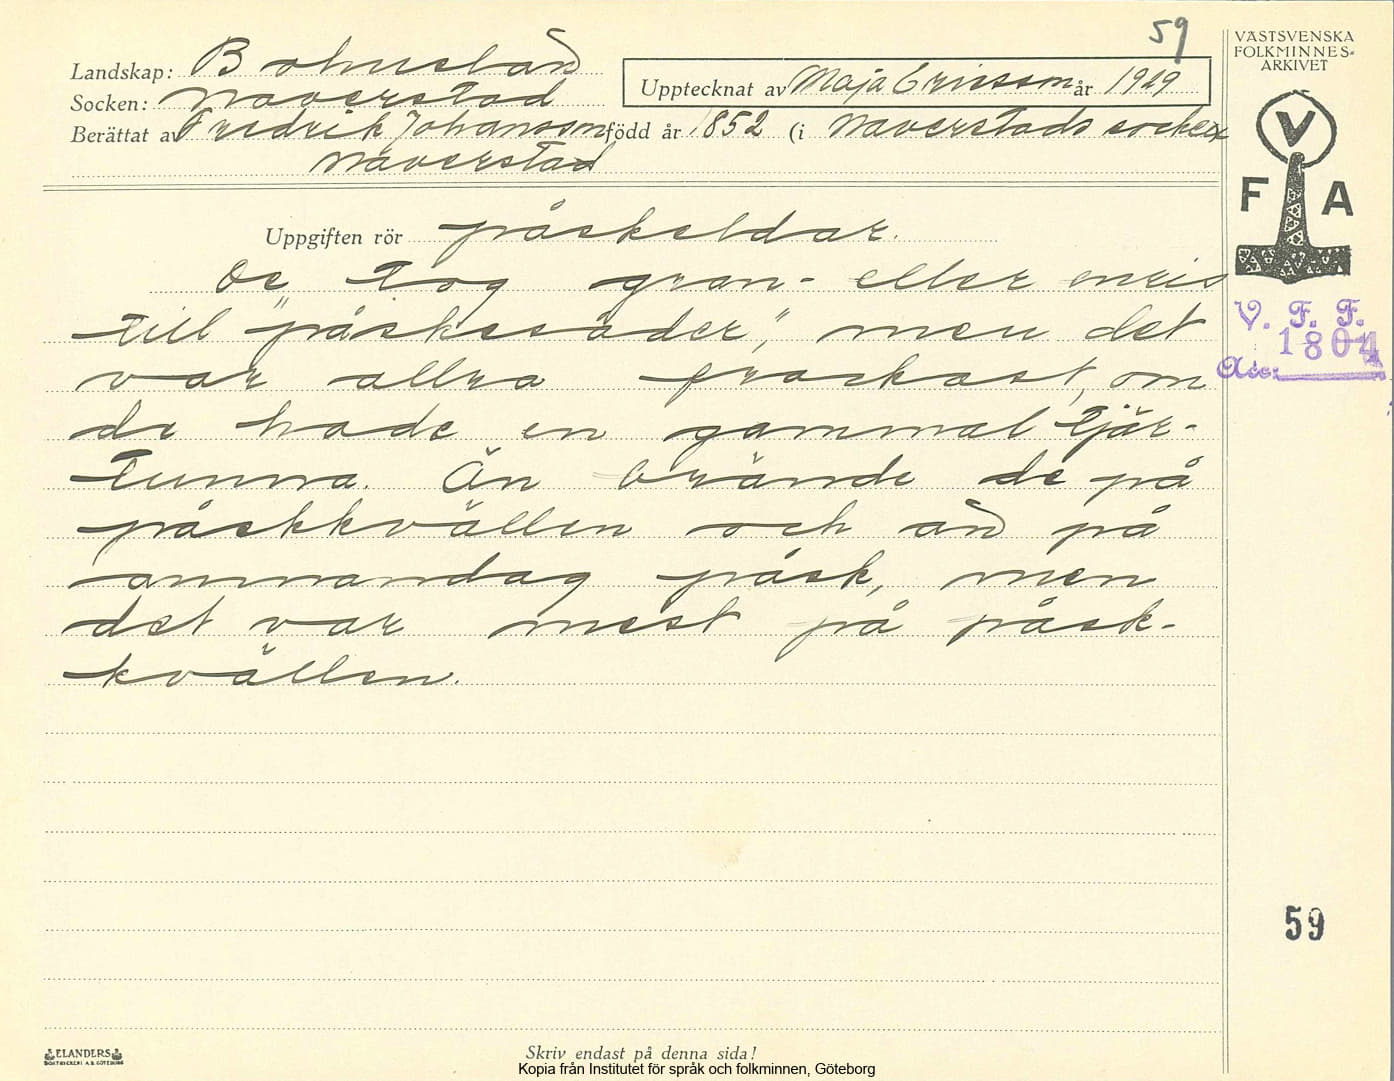 59
VÄSTSVENSKA
FOLKMINNES-
ARKIVET
Landskap: Bohuslän
Upptecknat av Maja Ericsson år 1929
Socken: Naverstad
Berättat av Fredrik Johansson född år 1852 (i Naverstads socken
Naverstad
V
F A
Uppgiften rör påskeldar.
De tog gran- eller enris
till "påskesader", men det
var allra graskast, om
de hade en gammal tjär-
tunna. Än brände de på
påskkvällen och än på
annandag påsk, men
det var mest på påsk-
kvällen.
V. F. F.
1804
Acc:
59
ELANDERS
BOKTRYCKERI A.B. GÖTEBORG
Skriv endast på denna sida!
Kopia från Institutet för språk och folkminnen, Göteborg